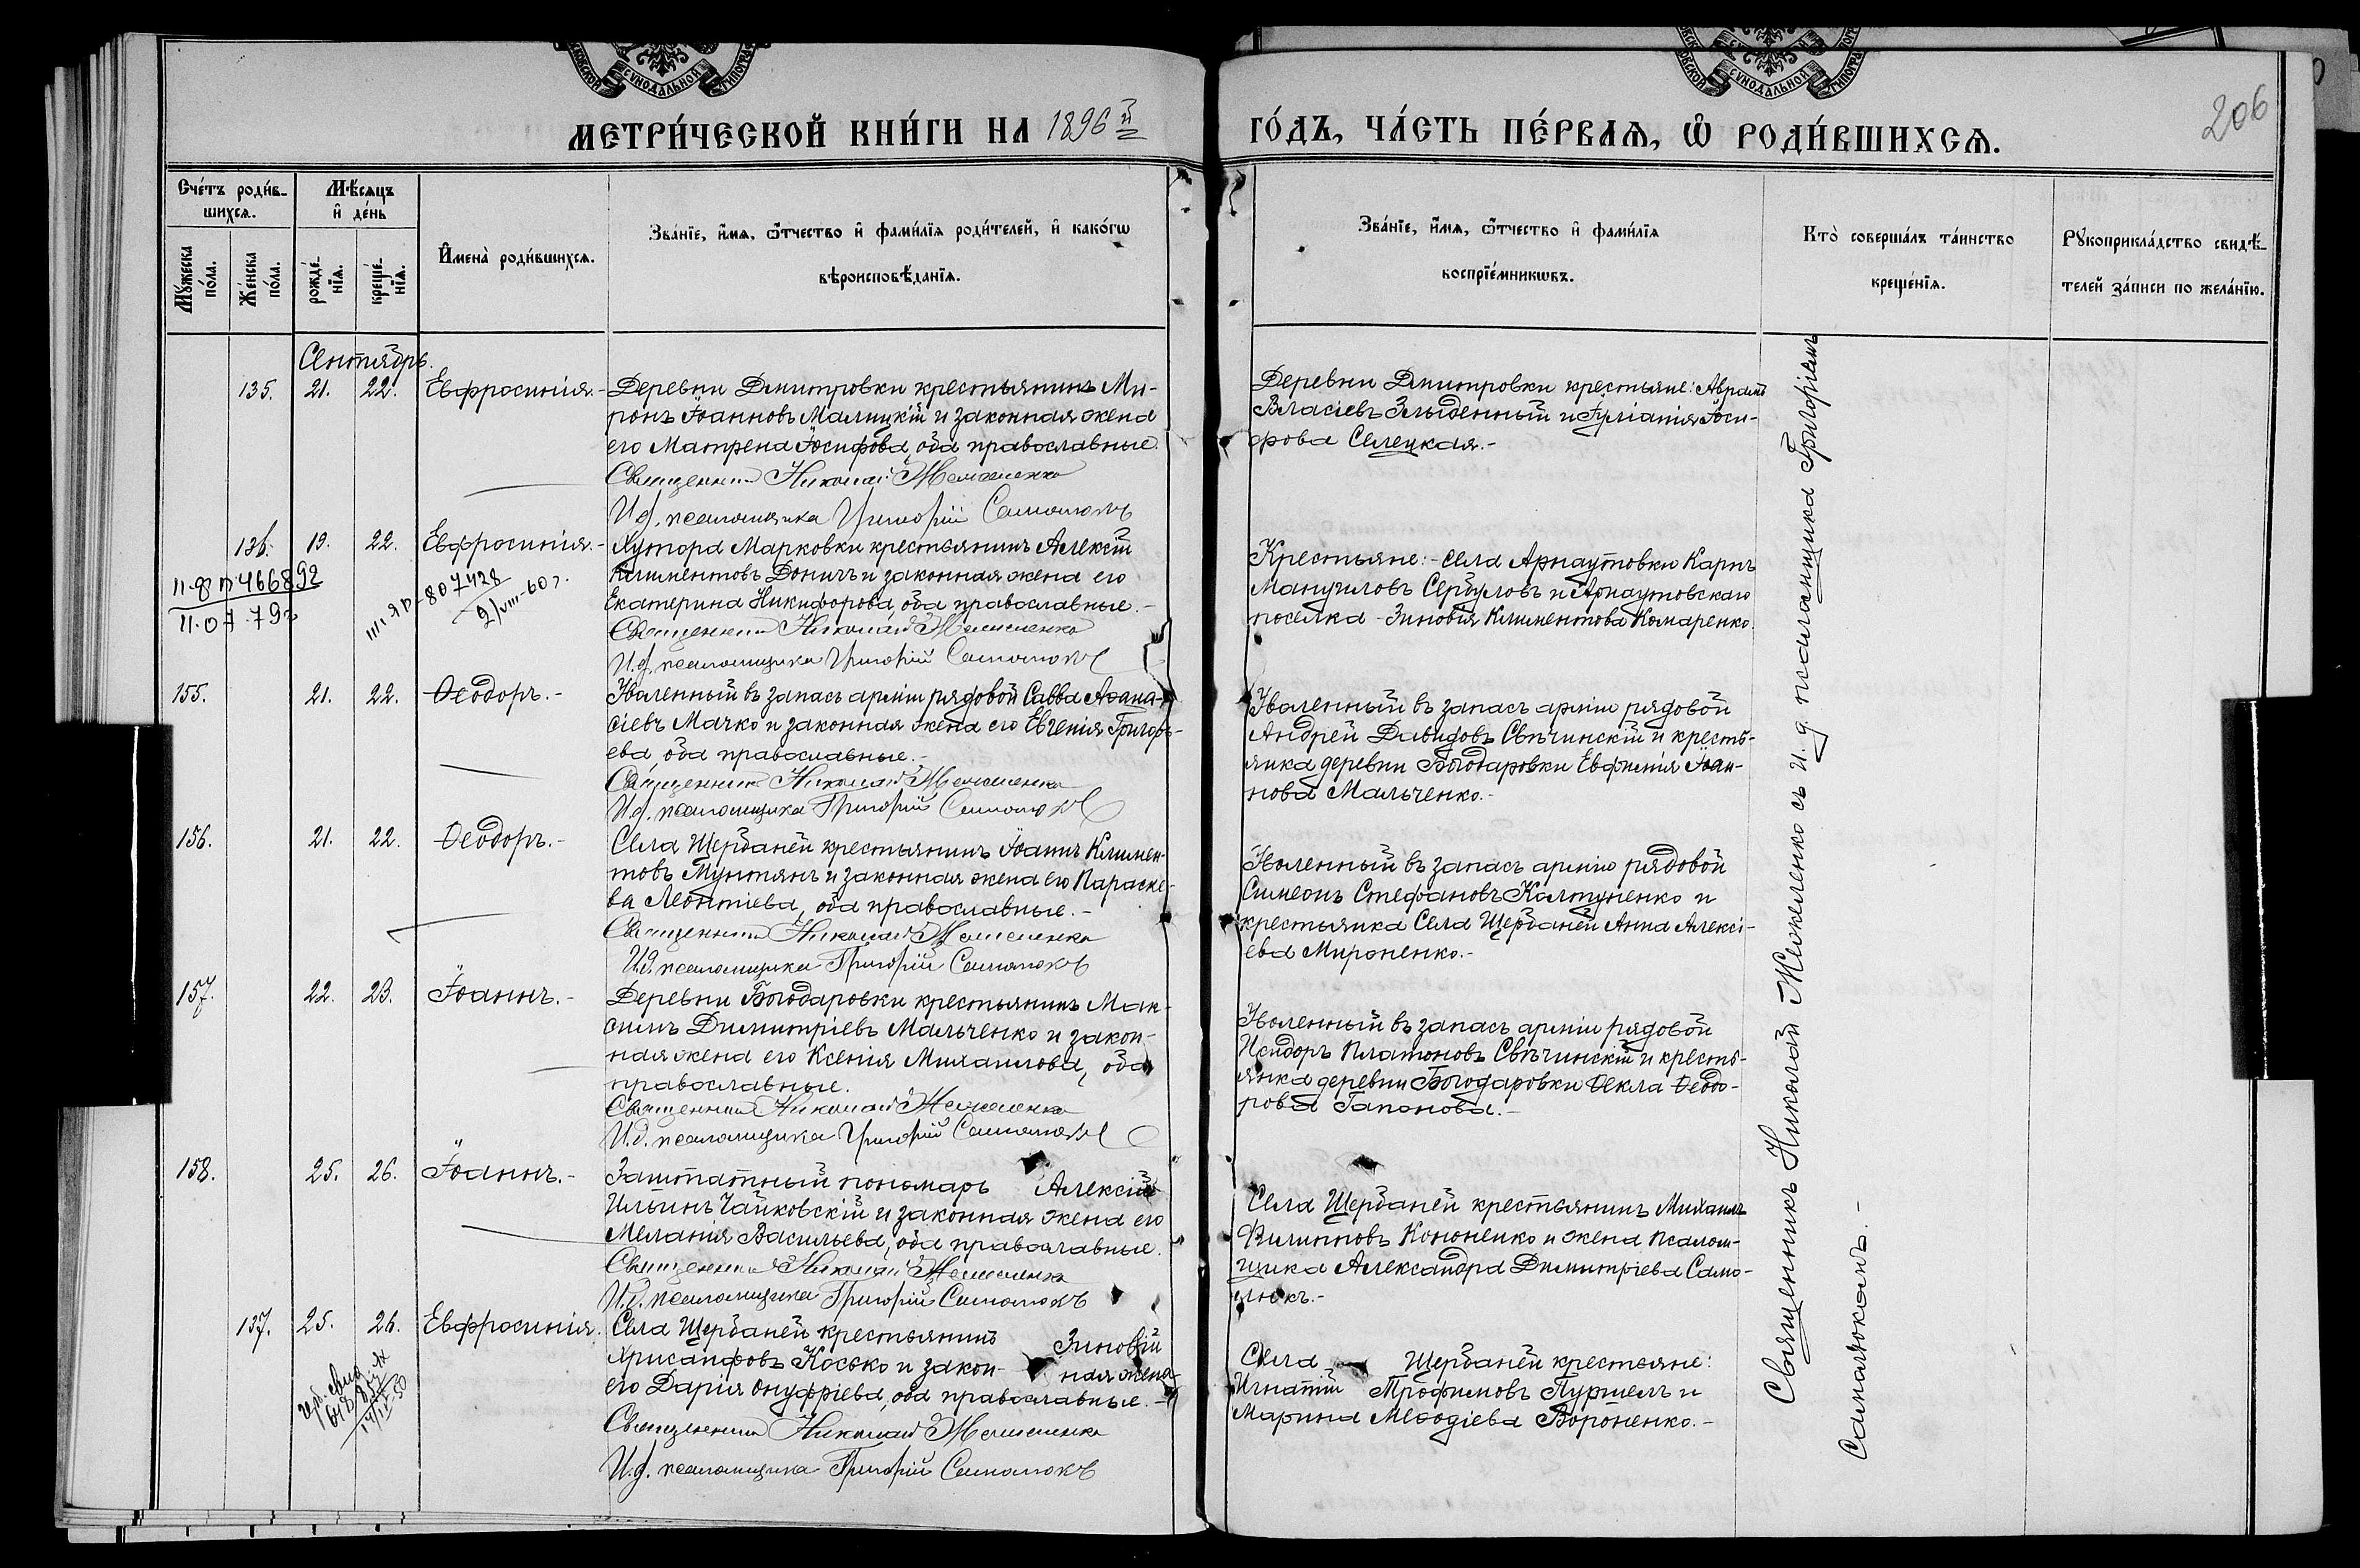 СѴНОДАЛЬНОЙ
СѴНОДАЛЬНОЙ
МЕТРИ́ЧЕСКОЙ КНИ́ГИ НА 1896 й
ГО́ДЪ, ЧА́СТЬ ПЕ́РВАѦ, Ѡ РОДИ́ВШИХСѦ.
206
Сче́тъ роди́в-
шихсѧ.
Мѣ́сѧцъ
и де́нь
Му́жеска по́ла.
Же́нска по́ла.
рожде́-
нїѧ.
креще́-
нїѧ.
Имена̀ роди́вшихсѧ.
Зва́нїе, и́мѧ, ѻ́тчество и фами́лїѧ роди́телей, и како́гѡ
вѣроисповѣ́данїѧ.
Зва́нїе, и́мѧ, ѻ́тчество и фами́лїѧ
воспрїе́мникѡвъ.
Кто̀ соверша́лъ та́инство
креще́нїѧ.
Рꙋкоприкла́дство свидѣ́-
телей за́писи по жела́нїю.
Сентябрь.
135. 21. 22. Евфросинія.- Деревни Дмитровки крестьянинъ Ми-
ронъ Іоанновъ Малицкій и законная жена
его Матрена Іосифова, оба православные.
Священникъ Николай Жежеленко
И.д. псаломщика Григорій Самолюкъ
Деревни Дмитровки крестьяне: Аврамъ
Власіевъ Злыденный и Іуліанія Іоси-
фова Селецкая.-
136. 19. 22. Евфросинія.- Хутора Марковки крестьянинъ Алексій
Климентовъ Доничъ и законная жена его
Екатерина Никифорова, оба православные.-
Священникъ Николай Жежеленко
И.д. псаломщика Григорій Самолюкъ
807428
2/VIII-60 г.
Крестьяне:- села Арнаутовки Карпъ
Мануиловъ Сербуловъ и Арнаутовскаго
поселка - Зиновія Климентова Комаренко.
155. 21. 22. Ѳеодоръ.- Уволенный въ запасъ арміи рядовой Савва Аѳана-
сіевъ Мачко и законная жена его Евгенія Григорь-
ева, оба православные.-
Священникъ Николай Жежеленко
И.д. псаломщика Григорій Самолюкъ
Уволенный въ запасъ арміи рядовой
Андрей Давидовъ Свѣчинскій и кресть-
янка деревни Богодаровки Евфимія Іоан-
нова Мальченко.-
156. 21. 22. Ѳеодоръ.- Села Щербаней крестьянинъ Іоаннъ Климен-
товъ Мунтянъ и законная жена его Параске-
ва Леонтіева, оба православные.-
Священникъ Николай Жежеленко
И.д. псаломщика Григорій Самолюкъ
Уволенный въ запасъ арміи рядовой
Симеонъ Стефановъ Колтуненко и
крестьянка Села Щербаней Анна Алексі-
ева Мироненко.-
157. 22. 23. Іоаннъ.- Деревни Богодаровки крестьянинъ Мак-
симъ Димитріевъ Мальченко и закон-
ная жена его Ксенія Михаилова, оба
православные.
Священникъ Николай Жежеленко
И.д. псаломщика Григорій Самолюкъ
Уволенный въ запасъ арміи рядовой
Исидоръ Платоновъ Свѣчинскій и кресть-
янка деревни Богодаровки Ѳекла Ѳеодо-
рова Гапонова.-
158. 25. 26. Іоаннъ.- Заштатный пономарь Алексій
Ильинъ Чайковскій и законная жена его
Меланія Васильева, оба православные.
Священникъ Николай Жежеленко
И.д. псаломщика Григорій Самолюкъ
Села Щербаней крестьянинъ Михаилъ
Филипповъ Кононенко и жена псалом-
щика Александра Димитріева Само-
люкъ.-
137. 25. 26. Евфросинія. Села Щербаней крестьянинъ Зиновій
Хрисанфовъ Косько и закон- ная жена
его Дарія Онуфріева, оба православные.-
Священникъ Николай Жежеленко
И.д. псаломщика Григорій Самолюкъ
Села Щербаней крестьяне:
Игнатій Трофимовъ Пуршелъ и
Марина Меѳодіева Вороненко.-
Священникъ Николай Жежеленко съ и. д. псаломщика Григоріемъ
Самолюкомъ.-